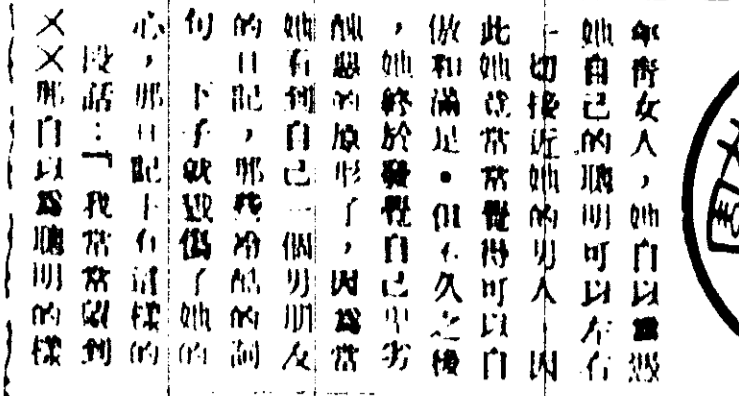 女人，她自以為
她自己的聰明可以左右
一切接近她的男人—因
此她就常常覺得可以自
傲和滿足．但不久之後
，她終於發覺自己卑劣
醜惡的原形了，因為當
她看到自己一個男朋友
的日記，那 冷酷的詞
句 下子就毀傷了她的
心，那日記上有這樣的
段話：「我常常 到
××那自以為聰明的樣